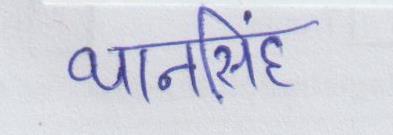 थानसिंह